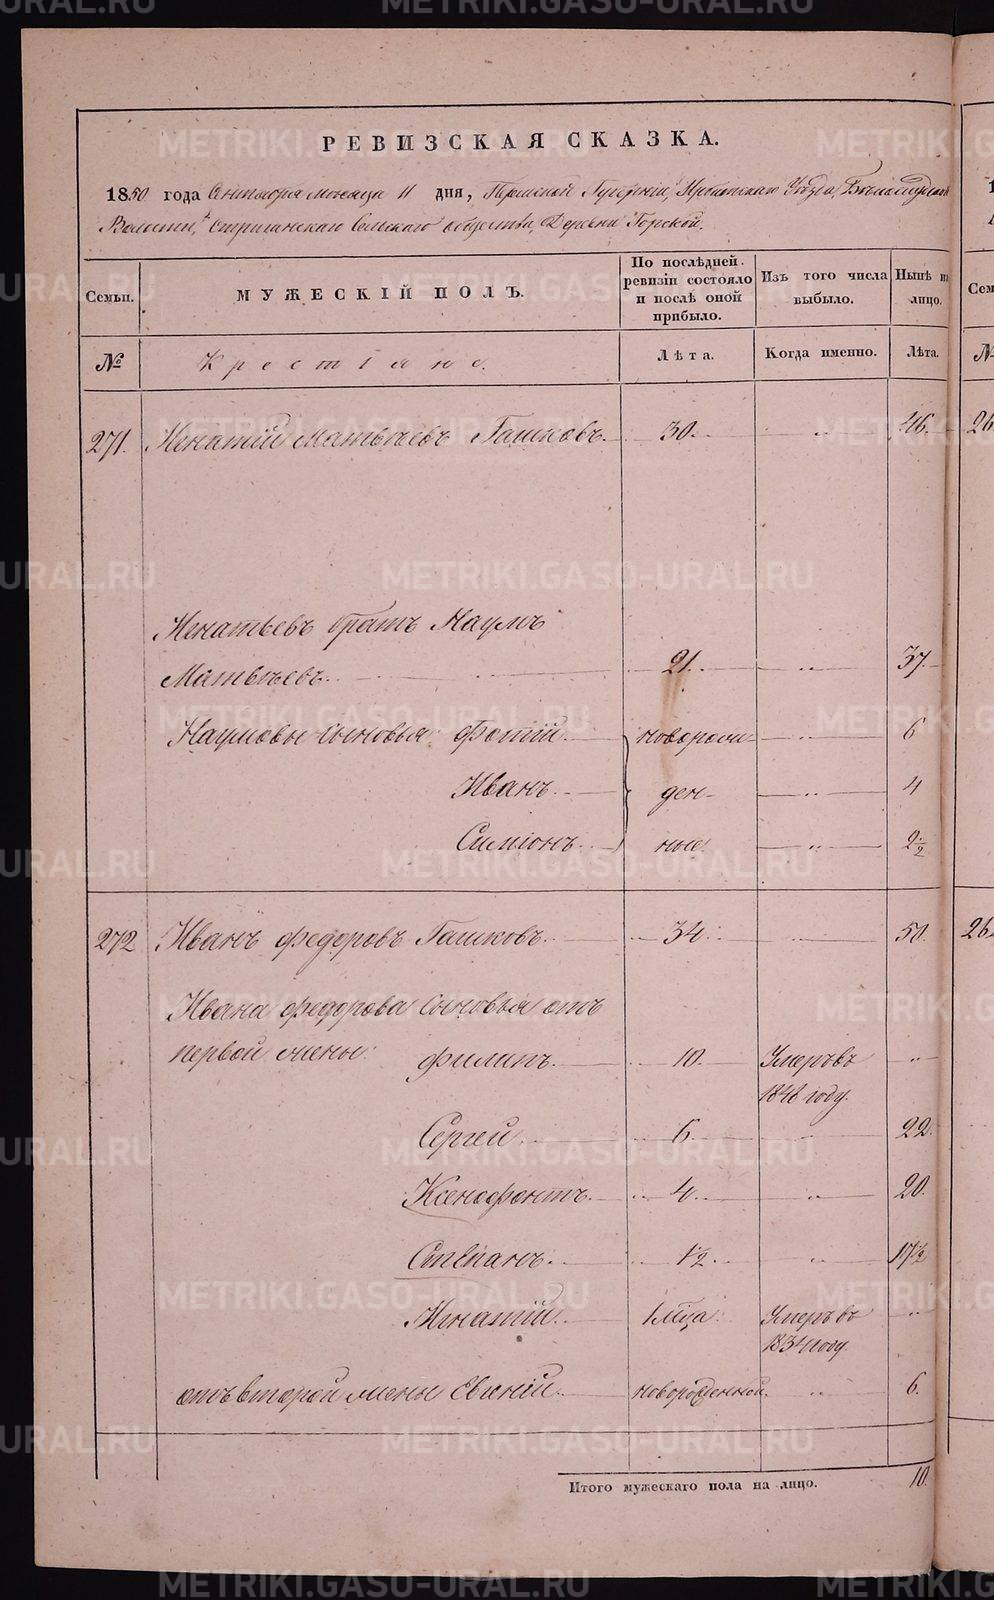 РЕВИЗСКАЯ СКАЗКА.
1850 года Сентября месяца 11 дня, Пермской Губерніи, Ирбитскаго Уѣзда, Бѣлослудской
Волости, Стриганскаго Сельскаго общества, Деревни Горской.
Семьи. МУЖЕСКІЙ ПОЛЪ. По послѣдней ревизіи состояло и послѣ оной прибыло. Изъ того числа выбыло. Нынѣ на лицо.
№ Крестіяне. Лѣта. Когда именно. Лѣта.
271. Игнатій Матвѣевъ Гашковъ. 30. „ 46.
Игнатьевъ братъ Наумъ
Матвѣевъ. 21. „ 37
Наумовы сыновья Фотій новорож- „ 6
Иванъ ден- „ 4
Симіонъ ные „ 2 1/2
272 Иванъ Федоровъ Гашковъ. 34. „ 50.
Ивана Федорова сыновья отъ
первой жены
Филипъ 10 Умеръ въ „
1848 году.
Сергей 6. „ 22.
Ксенофонтъ 4. „ 20.
Степанъ 1 1/2 „ 17 1/2
Игнатій 1 мца Умеръ въ „
1834 году.
отъ второй жены Евгеній новорожденной „ 6.
Итого мужескаго пола на лицо. 10.
METRIKI.GASO-URAL.RU